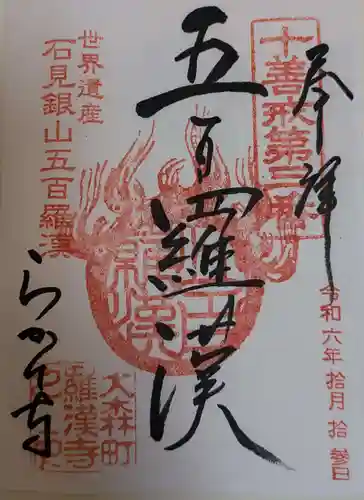 十善戒第三教
奉拝
令和六年拾月拾参日
五百羅漢
世界遺産
石見銀山五百羅漢
らかん寺
大森町
羅漢寺